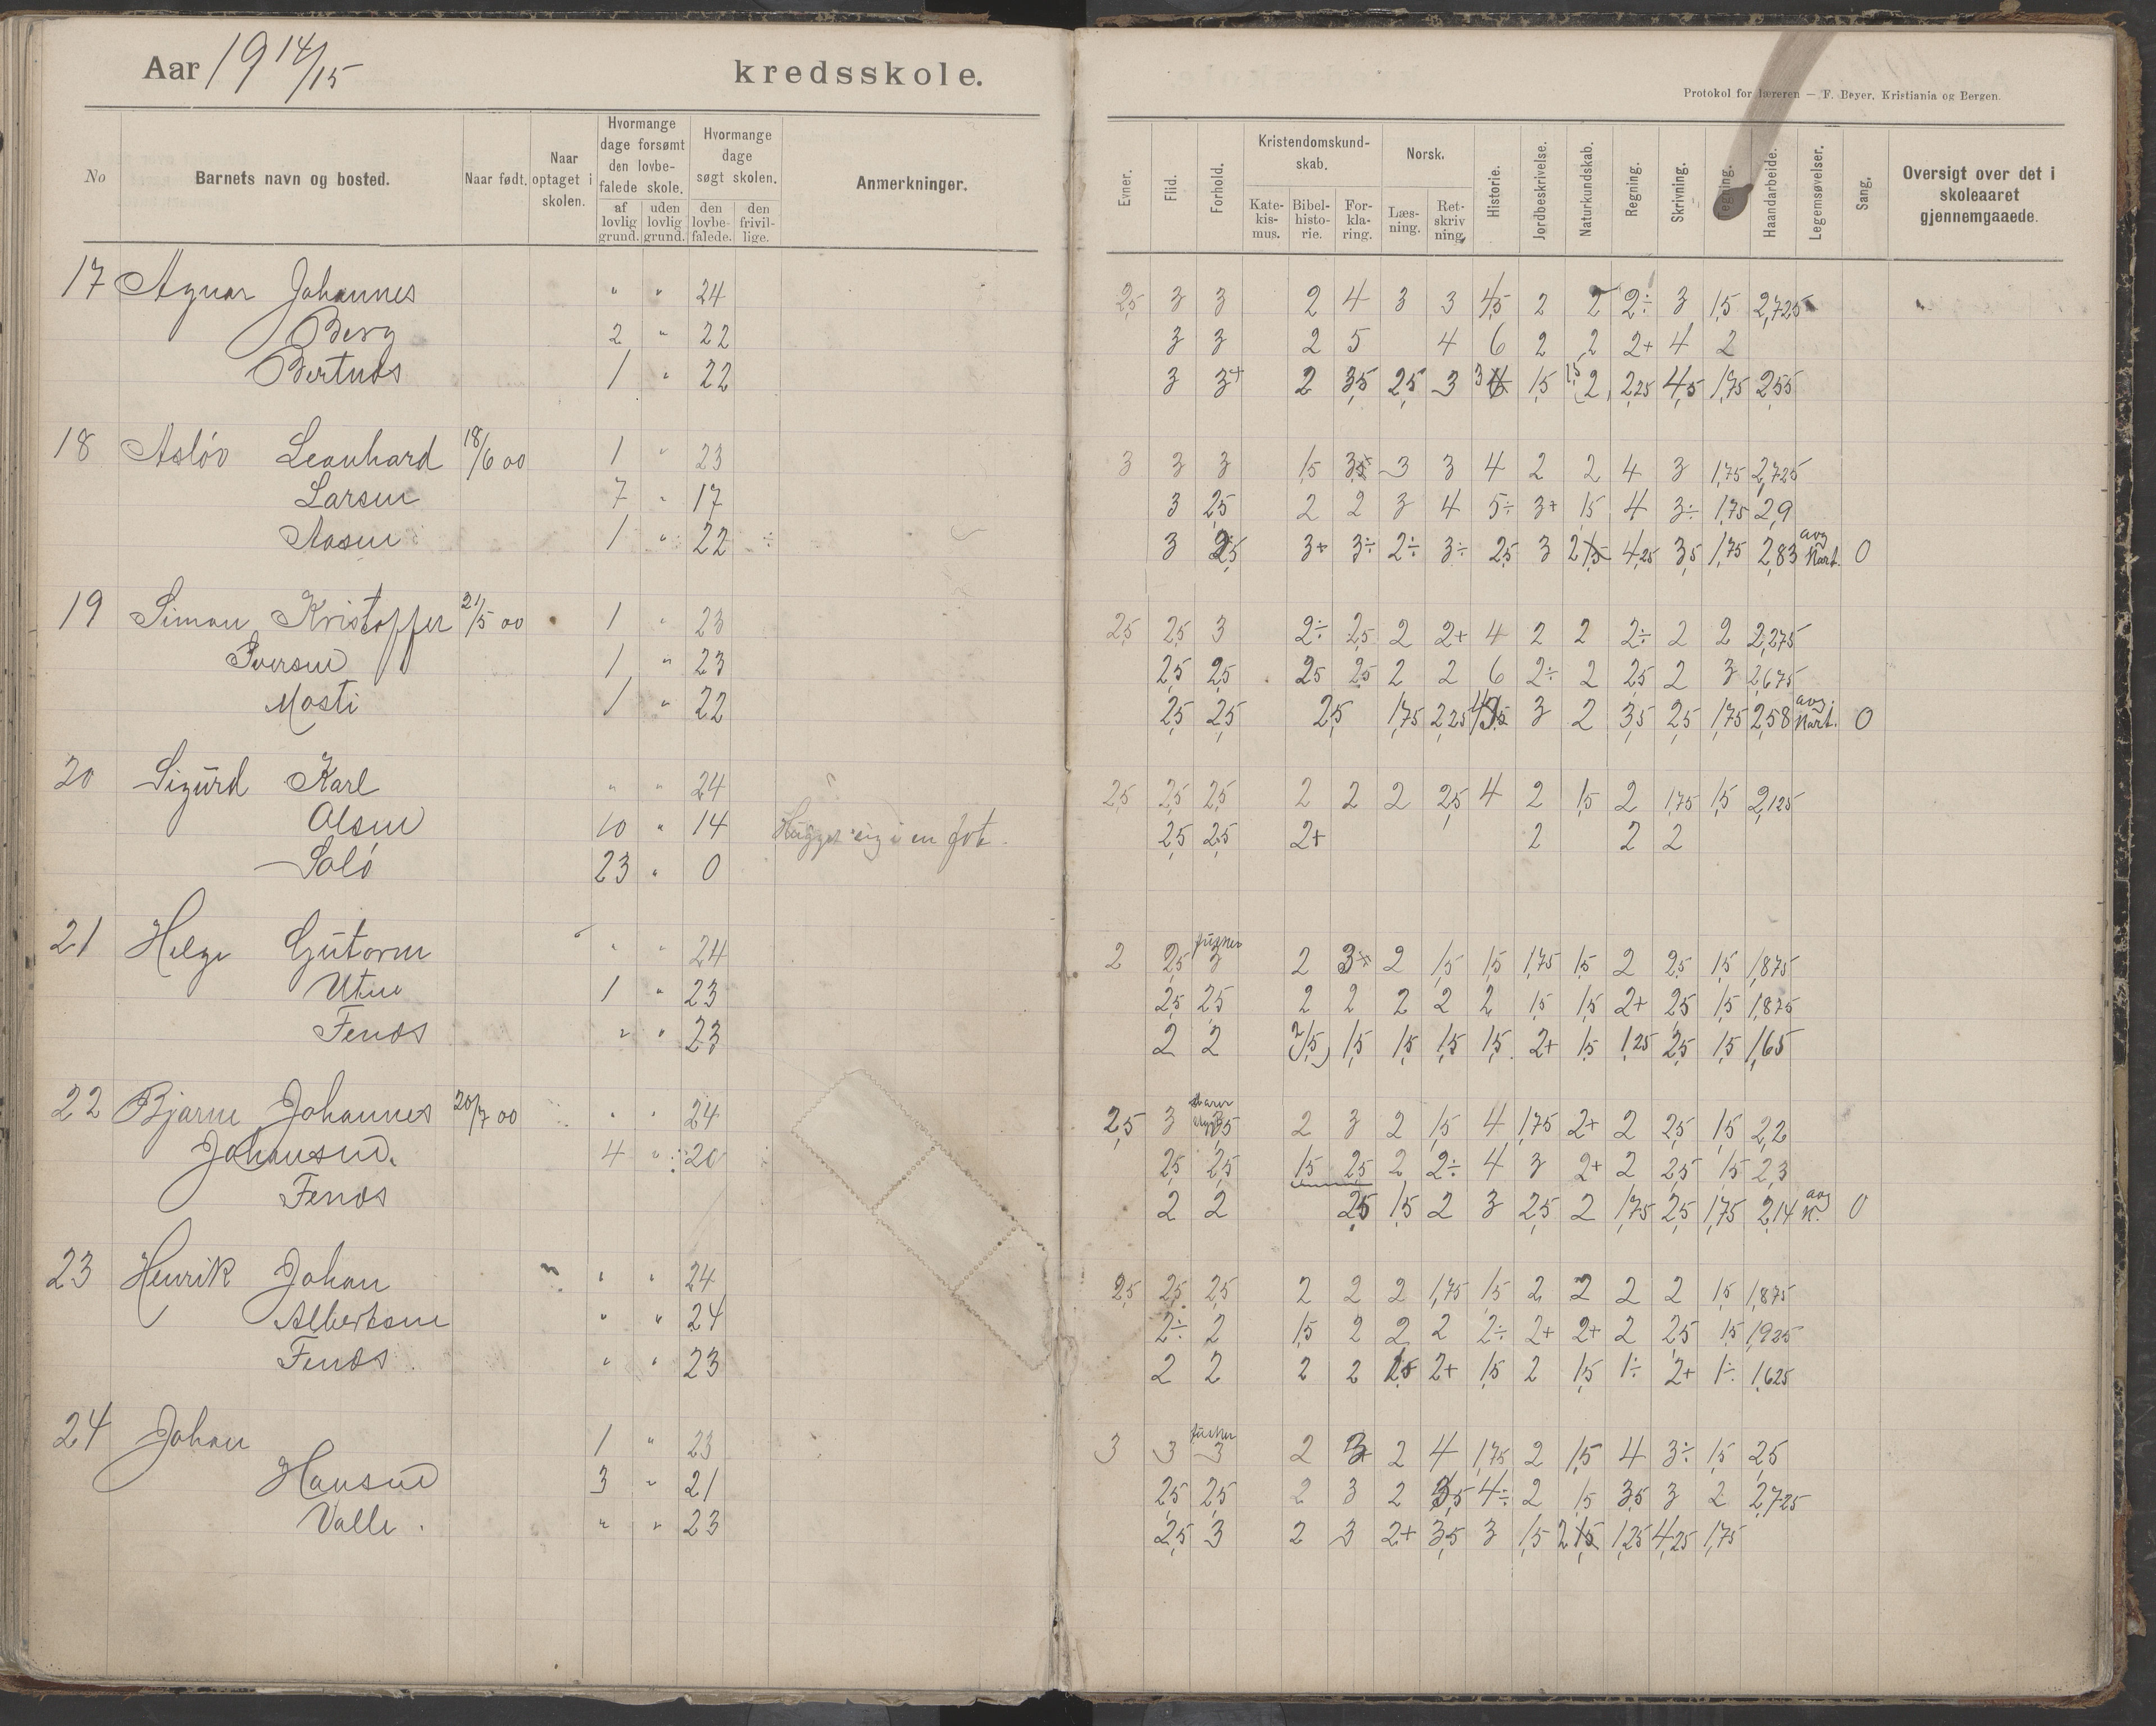 Aar 1914/15 kredsskole.
Protokol for læreren — F. Beyer, Kristiania og Bergen.
No Barnets navn og bosted. Naar født. Naar optaget i skolen. Hvormange dage forsømt den lovbefalede skole. af lovlig grund. uden lovlig grund. Hvormange dage søgt skolen. den lovbefalede. den frivillige. Anmerkninger.
Evner. Flid. Forhold. Kristendomskundskab. Katekismus. Bibelhistorie. Forklaring. Norsk. Læsning. Retskrivning. Historie. Jordbeskrivelse. Naturkundskab. Regning. Skrivning. Tegning. Haandarbeide. Legemsøvelser. Sang. Oversigt over det i skoleaaret gjennemgaaede.
17 Agnar Johannes " " 24 2,5 3 3 2 4 3 3 4,5 2 2 2÷ 3 1,5 2,725
Berg 2 " 22 3 3 2 5 4 6 2 2 2+ 4 2
Bertnæs 1 " 22 3 3+ 2 3,5 2,5 3 3 1,5 2 2,25 4,5 1,75 2,55
18 Asløv Leonhard 18/6 00 1 " 23 3 3 3 1,5 3,5 3 3 4 2 2 4 3 1,75 2,725
Larsen 7 " 17 3 2,5 2 2 3 4 5÷ 3+ 1,5 4 3÷ 1,75 2,9
Aasen 1 " 22 3 2,5 3+ 3÷ 2÷ 3÷ 2,5 3 2 4,25 3,5 1,75 2,83 avg Kart. 0
19 Simon Kristoffer 21/5 00 1 " 23 2,5 2,5 3 2÷ 2,5 2 2+ 4 2 2 2÷ 2 2 2,275
Iversen 1 " 23 2,5 2,5 2,5 2,5 2 2 6 2÷ 2 2,5 2 3 2,675
Mosti 1 " 22 2,5 2,5 2,5 1,75 2,25 3 2 3,5 2,5 1,75 2,58 avg. Kart. 0
20 Sigurd Karl " " 24 2,5 2,5 2,5 2 2 2 2,5 4 2 1,5 2 1,75 1,5 2,125
Olsen 10 " 14 Hugget sig i en fot. 2,5 2,5 2+ 2 2 2
Salø 23 " 0
21 Helge Gutorm " " 24 2 2,5 3 2 3+ 2 1,5 1,5 1,75 1,5 2 2,5 1,5 1,875
Utne 1 " 23 2,5 2,5 2 2 2 2 2 1,5 1,5 2+ 2,5 1,5 1,875
Fenæs " " 23 2 2 1,5 1,5 1,5 1,5 1,5 2+ 1,5 1,25 2,5 1,5 1,65
22 Bjarne Johannes 20/7 00 " " 24 2,5 3 2 3 2 1,5 4 1,75 2+ 2 2,5 1,5 2,2
Johansen. 4 " 20 2,5 2,5 1,5 2,5 2 2÷ 4 3 2+ 2 2,5 1,5 2,3
Fenæs 2 2 2,5 1,5 2 3 2,5 2 1,75 2,5 1,75 2,14 avg K. 0
23 Henrik Johan " " 24 2,5 2,5 2,5 2 2 2 1,75 1,5 2 2 2 2 1,5 1,875
Albertsen " " 24 2÷ 2 1,5 2 2 2 2÷ 2+ 2+ 2 2,5 1,5 1,925
Fenæs " " 23 2 2 2 2 1,5 2+ 1,5 2 1,5 1÷ 2+ 1÷ 1,625
24 Johan 1 " 23 3 3 3 2 3 2 4 1,75 2 1,5 4 3÷ 1,5 2,5
Hansen 3 " 21 2,5 2,5 2 3 2 3,5 4÷ 2 1,5 3,5 3 2 2,725
Valle. " " 23 2,5 3 2 3 2+ 3,5 3 1,5 2 1,25 4,25 1,75